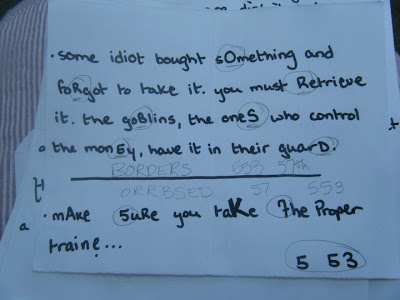 · some idiot bought sOmething and
foRgot to take it. you must Retrieve
it. the goBlins, the oneS who control
the monEy, have it in their guarD.
BORDERS 553
ORRBSED 57 553
· mAke 5uRe you taKe 7he Proper
traine...
5 53